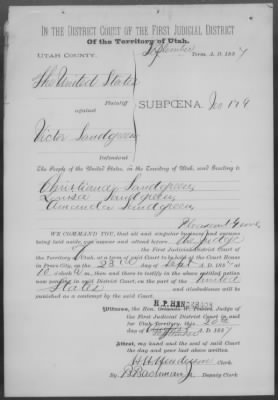 IN THE DISTRICT COURT OF THE FIRST JUDICIAL DISTRICT
Of the Territory of Utah.
UTAH COUNTY. September Term, A. D. 1887
The United States
Plaintiff
against
SUBPŒNA. No 179
Victor Sandgreen
Defendant
The People of the United States, in the Territory of Utah, send Greeting to
Christiancy Sandgreen
Louisa Sandgreen
Amanda Sandgreen
Pleasant Grove
WE COMMAND YOU, that all and singular business and excuses
being laid aside, you appear and attend before the Judge
the First Judicial District Court of the
Territory of Utah, at a term of said Court to be held at the Court House
in Provo City, on the 28th day of Sept A. D. 1887 at
10 o'clock a m., then and there to testify in the above entitled action
now pending in said District Court, on the part of the United
States and disobedience will be
punished as a contempt by the said Court.
H. P. HENDERSON
Witness, the Hon. Judge of
the First Judicial District Court in and
for Utah Territory, this 20th
day of September A. D. 1887
Attest, my hand and the seal of said Court
the day and year last above written.
Henderson Clerk
By B Bachman Jr Deputy Clerk